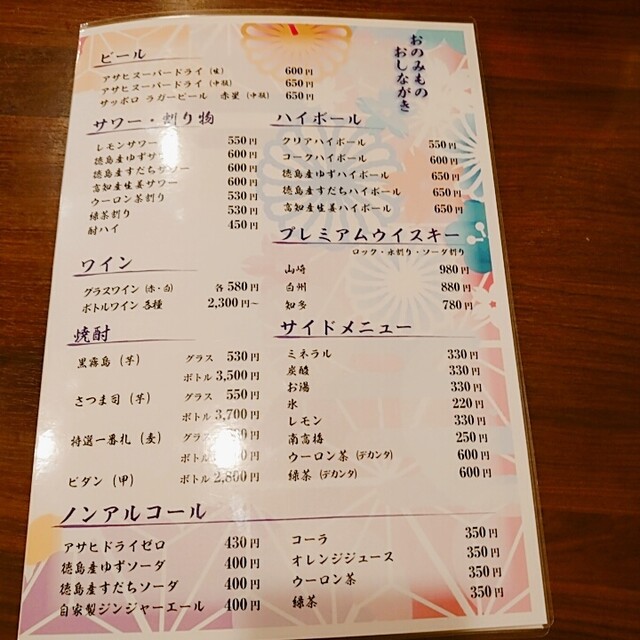 おのみもの
おしながき
ビール
アサヒスーパードライ (生) 600円
アサヒスーパードライ (中瓶) 650円
サッポロ ラガービール 赤星 (中瓶) 650円
サワー・割り物
レモンサワー 550円
徳島産ゆずサワー 600円
徳島産すだちサワー 600円
高知産生姜サワー 600円
ウーロン茶割り 530円
緑茶割り 530円
酎ハイ 450円
ハイボール
クリアハイボール 550円
コークハイボール 600円
徳島産ゆずハイボール 650円
徳島産すだちハイボール 650円
高知産生姜ハイボール 650円
プレミアムウイスキー
ロック・水割り・ソーダ割り
山崎 980円
白州 880円
知多 780円
ワイン
グラスワイン (赤・白) 各 580円
ボトルワイン 各種 2,300円～
焼酎
黒霧島 (芋) グラス 530円
ボトル 3,500円
さつま司 (芋) グラス 550円
ボトル 3,700円
特選一番札 (麦) グラス
ボトル
ピダン (甲) ボトル 2,800円
サイドメニュー
ミネラル 330円
炭酸 330円
お湯 330円
氷 220円
レモン 330円
南高梅 250円
ウーロン茶 (デカンタ) 600円
緑茶 (デカンタ) 600円
ノンアルコール
アサヒドライゼロ 430円
徳島産ゆずソーダ 400円
徳島産すだちソーダ 400円
自家製ジンジャーエール 400円
コーラ 350円
オレンジジュース 350円
ウーロン茶 350円
緑茶 350円